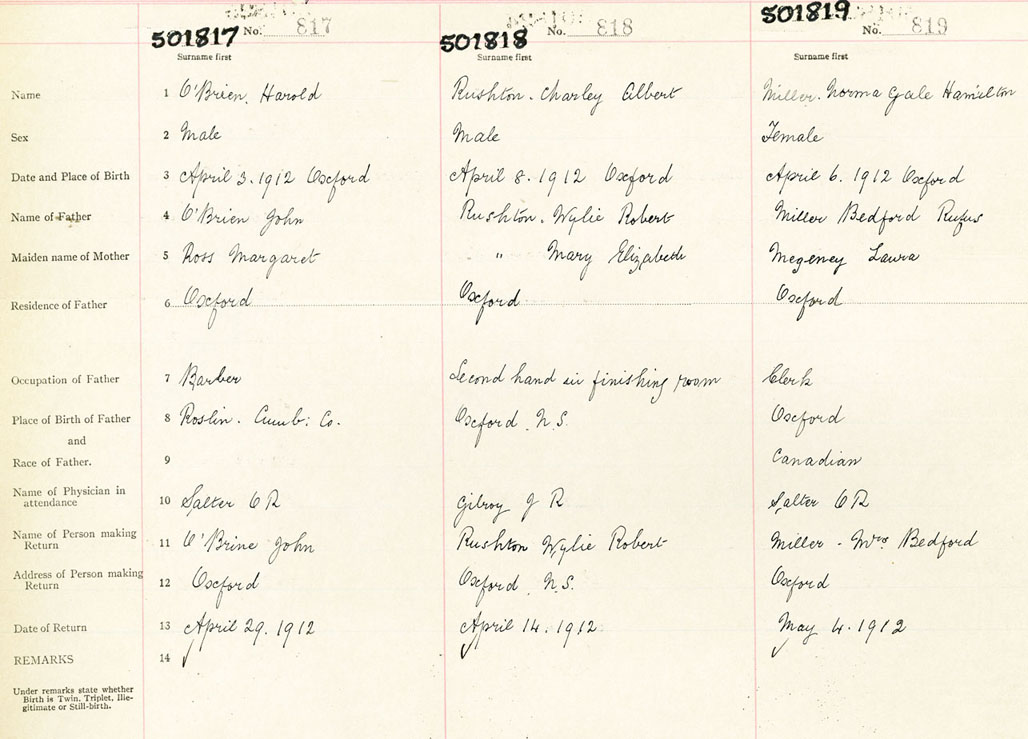 501817 No. 817 501818 No. 818 501819 No. 819
Surname first Surname first Surname first
Name 1 O'Brien, Harold Rushton. Charley Albert Miller. Norma Gale Hamilton
Sex 2 Male Male Female
Date and Place of Birth 3 April 3. 1912 Oxford April 8. 1912 Oxford April 6. 1912 Oxford
Name of Father 4 O'Brien John Rushton. Wylie Robert Miller Bedford Rufus
Maiden name of Mother 5 Ross Margaret " Mary Elizabeth Megeney Laura
Residence of Father 6 Oxford Oxford Oxford
Occupation of Father 7 Barber Second hand in finishing room Clerk
Place of Birth of Father 8 Roslin. Cumb: Co. Oxford. N.S. Oxford
and
Race of Father. 9 Canadian
Name of Physician in
attendance 10 Salter C R Gilroy J R Salter C R
Name of Person making
Return 11 O'Brine John Rushton Wylie Robert Miller - Mrs Bedford
Address of Person making
Return 12 Oxford Oxford. N.S. Oxford
Date of Return 13 April 29. 1912 April 14. 1912 May 4. 1912
REMARKS 14
Under remarks state whether
Birth is Twin, Triplet, Ille-
gitimate or Still-birth.